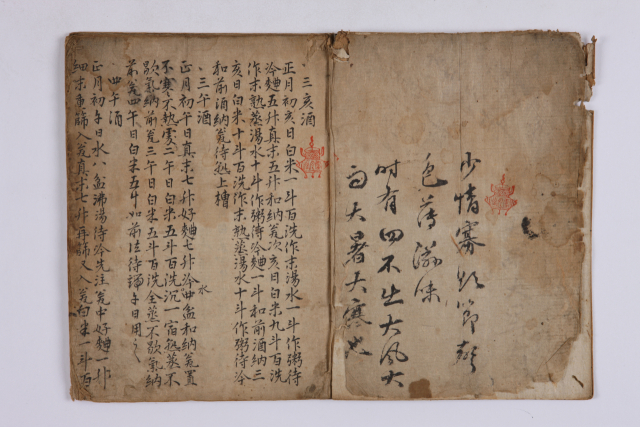 少情寡欲節聲
色薄滋味
時有四不出大風大
雨大暑大寒也
三亥酒
正月初亥日白米一斗百洗作末湯水一斗作粥待
冷麴五升真末五升和納瓮次亥日白米九斗百洗
作末熟蒸湯水十斗作粥待冷麴一斗和前酒納三
亥日白米十斗百洗作末熟蒸湯水十斗作粥待冷
和前酒納瓮待熟上槽
三午酒
正月初午日真末七升好麴七升冷水四盆和納瓮置
不寒不熱處二午日白米五斗百洗沉一宿熟蒸不
歇氣納前瓮三午日白米五斗百洗全蒸不歇氣納
前瓮四午日白米五斗如前法待端午日用之
四午酒
正月初午日水八盆沸湯待冷先注瓮中好麴一升
細末重篩入瓮真末七升再篩又入瓮白米一斗百